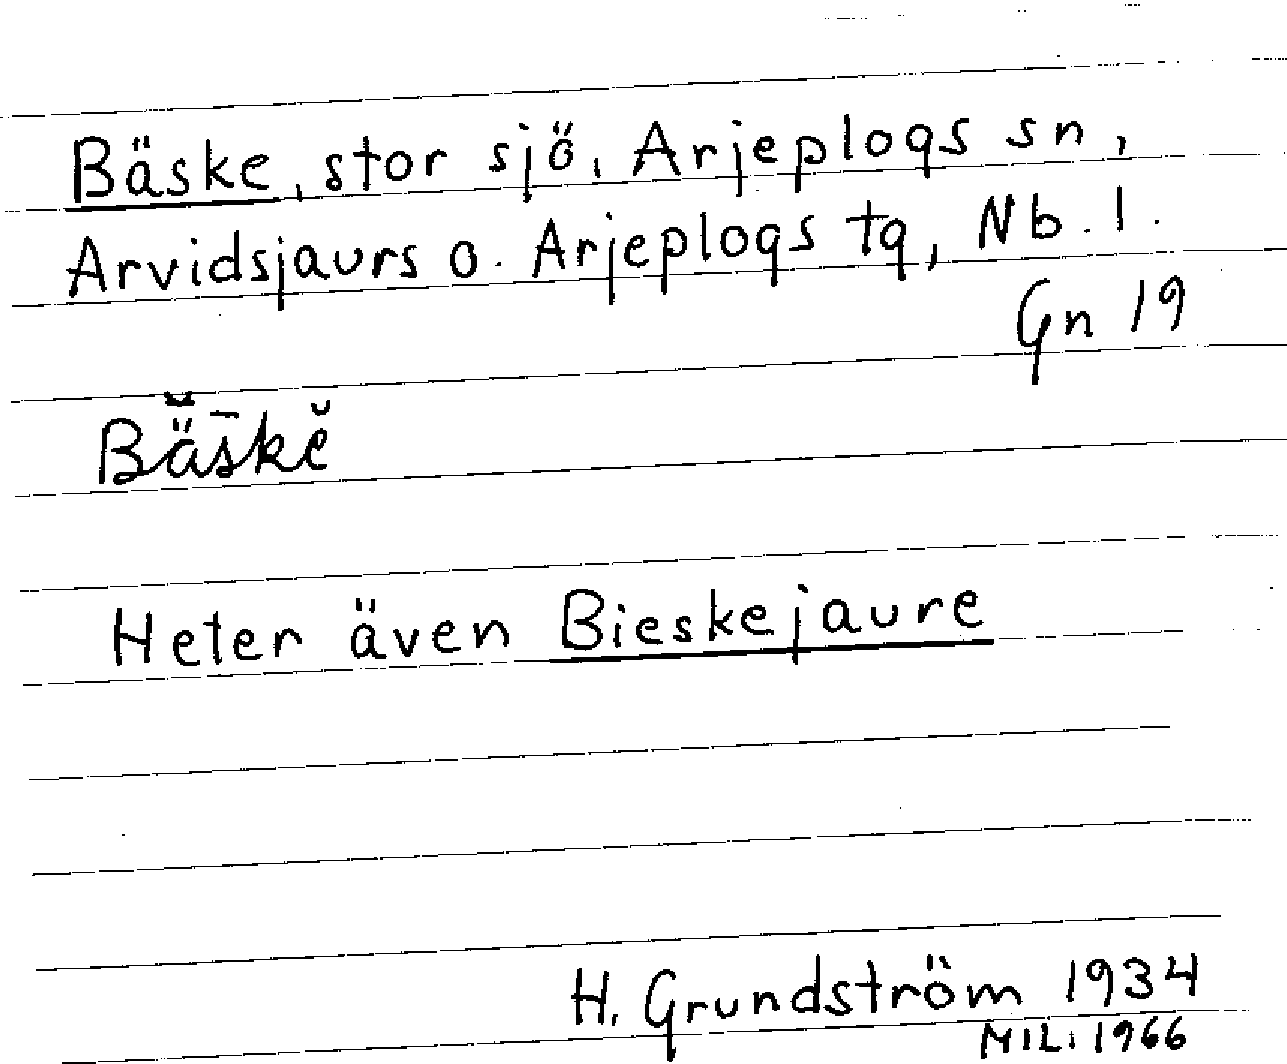 Bäske, stor sjö, Arjeplogs sn,
Arvidsjaurs o. Arjeplogs tg, Nb. l.
Gn 19
Bä̆s̄kĕ
Heter även Bieskejaure
H. Grundström 1934
MIL: 1966